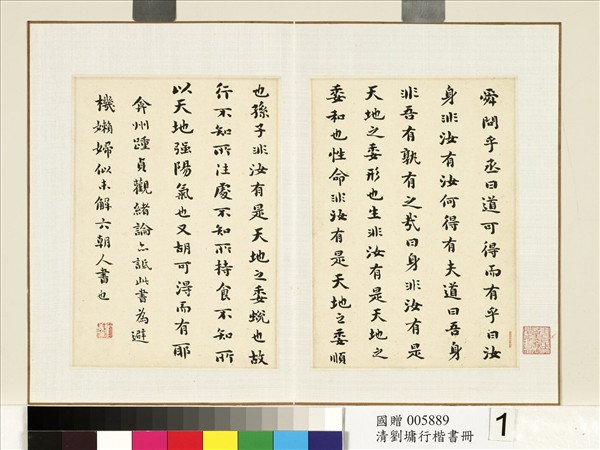 舜問乎丞曰道可得而有乎曰汝
身非汝有汝何得有夫道曰吾身
非吾有孰有之哉曰身非汝有是
天地之委形也生非汝有是天地之
委和也性命非汝有是天地之委順
也孫子非汝有是天地之委蛻也故
行不知所往處不知所持食不知所
以天地強陽氣也又胡可得而有耶
弇州踵貞觀緒論亦詆此書為避
機嬾婦似未解六朝人書也
國贈 005889
清劉墉行楷書冊
1